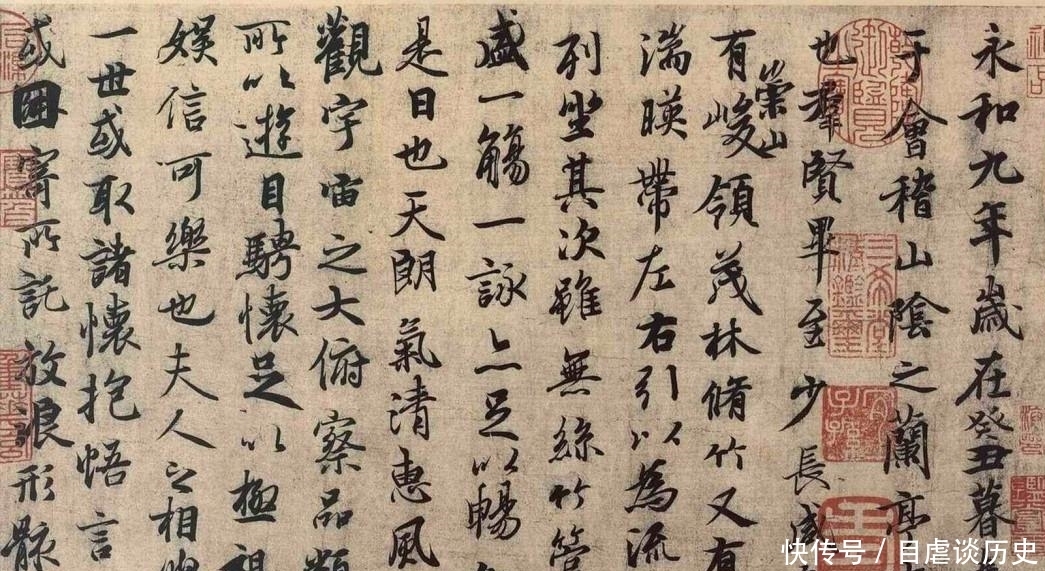 永和九年歲在癸丑暮
于會稽山陰之蘭亭
也羣賢畢至少長咸
有崇山峻領茂林脩竹又有
湍暎帶左右引以為流
列坐其次雖無絲竹管
盛一觴一詠亦足以暢
是日也天朗氣清惠風
觀宇宙之大俯察品類
所以遊目騁懷足以極視
娛信可樂也夫人之相
一世或取諸懷抱悟言
或因寄所託放浪形骸
三希堂精鑑璽
宜子孫
快传号 / 目虐谈历史